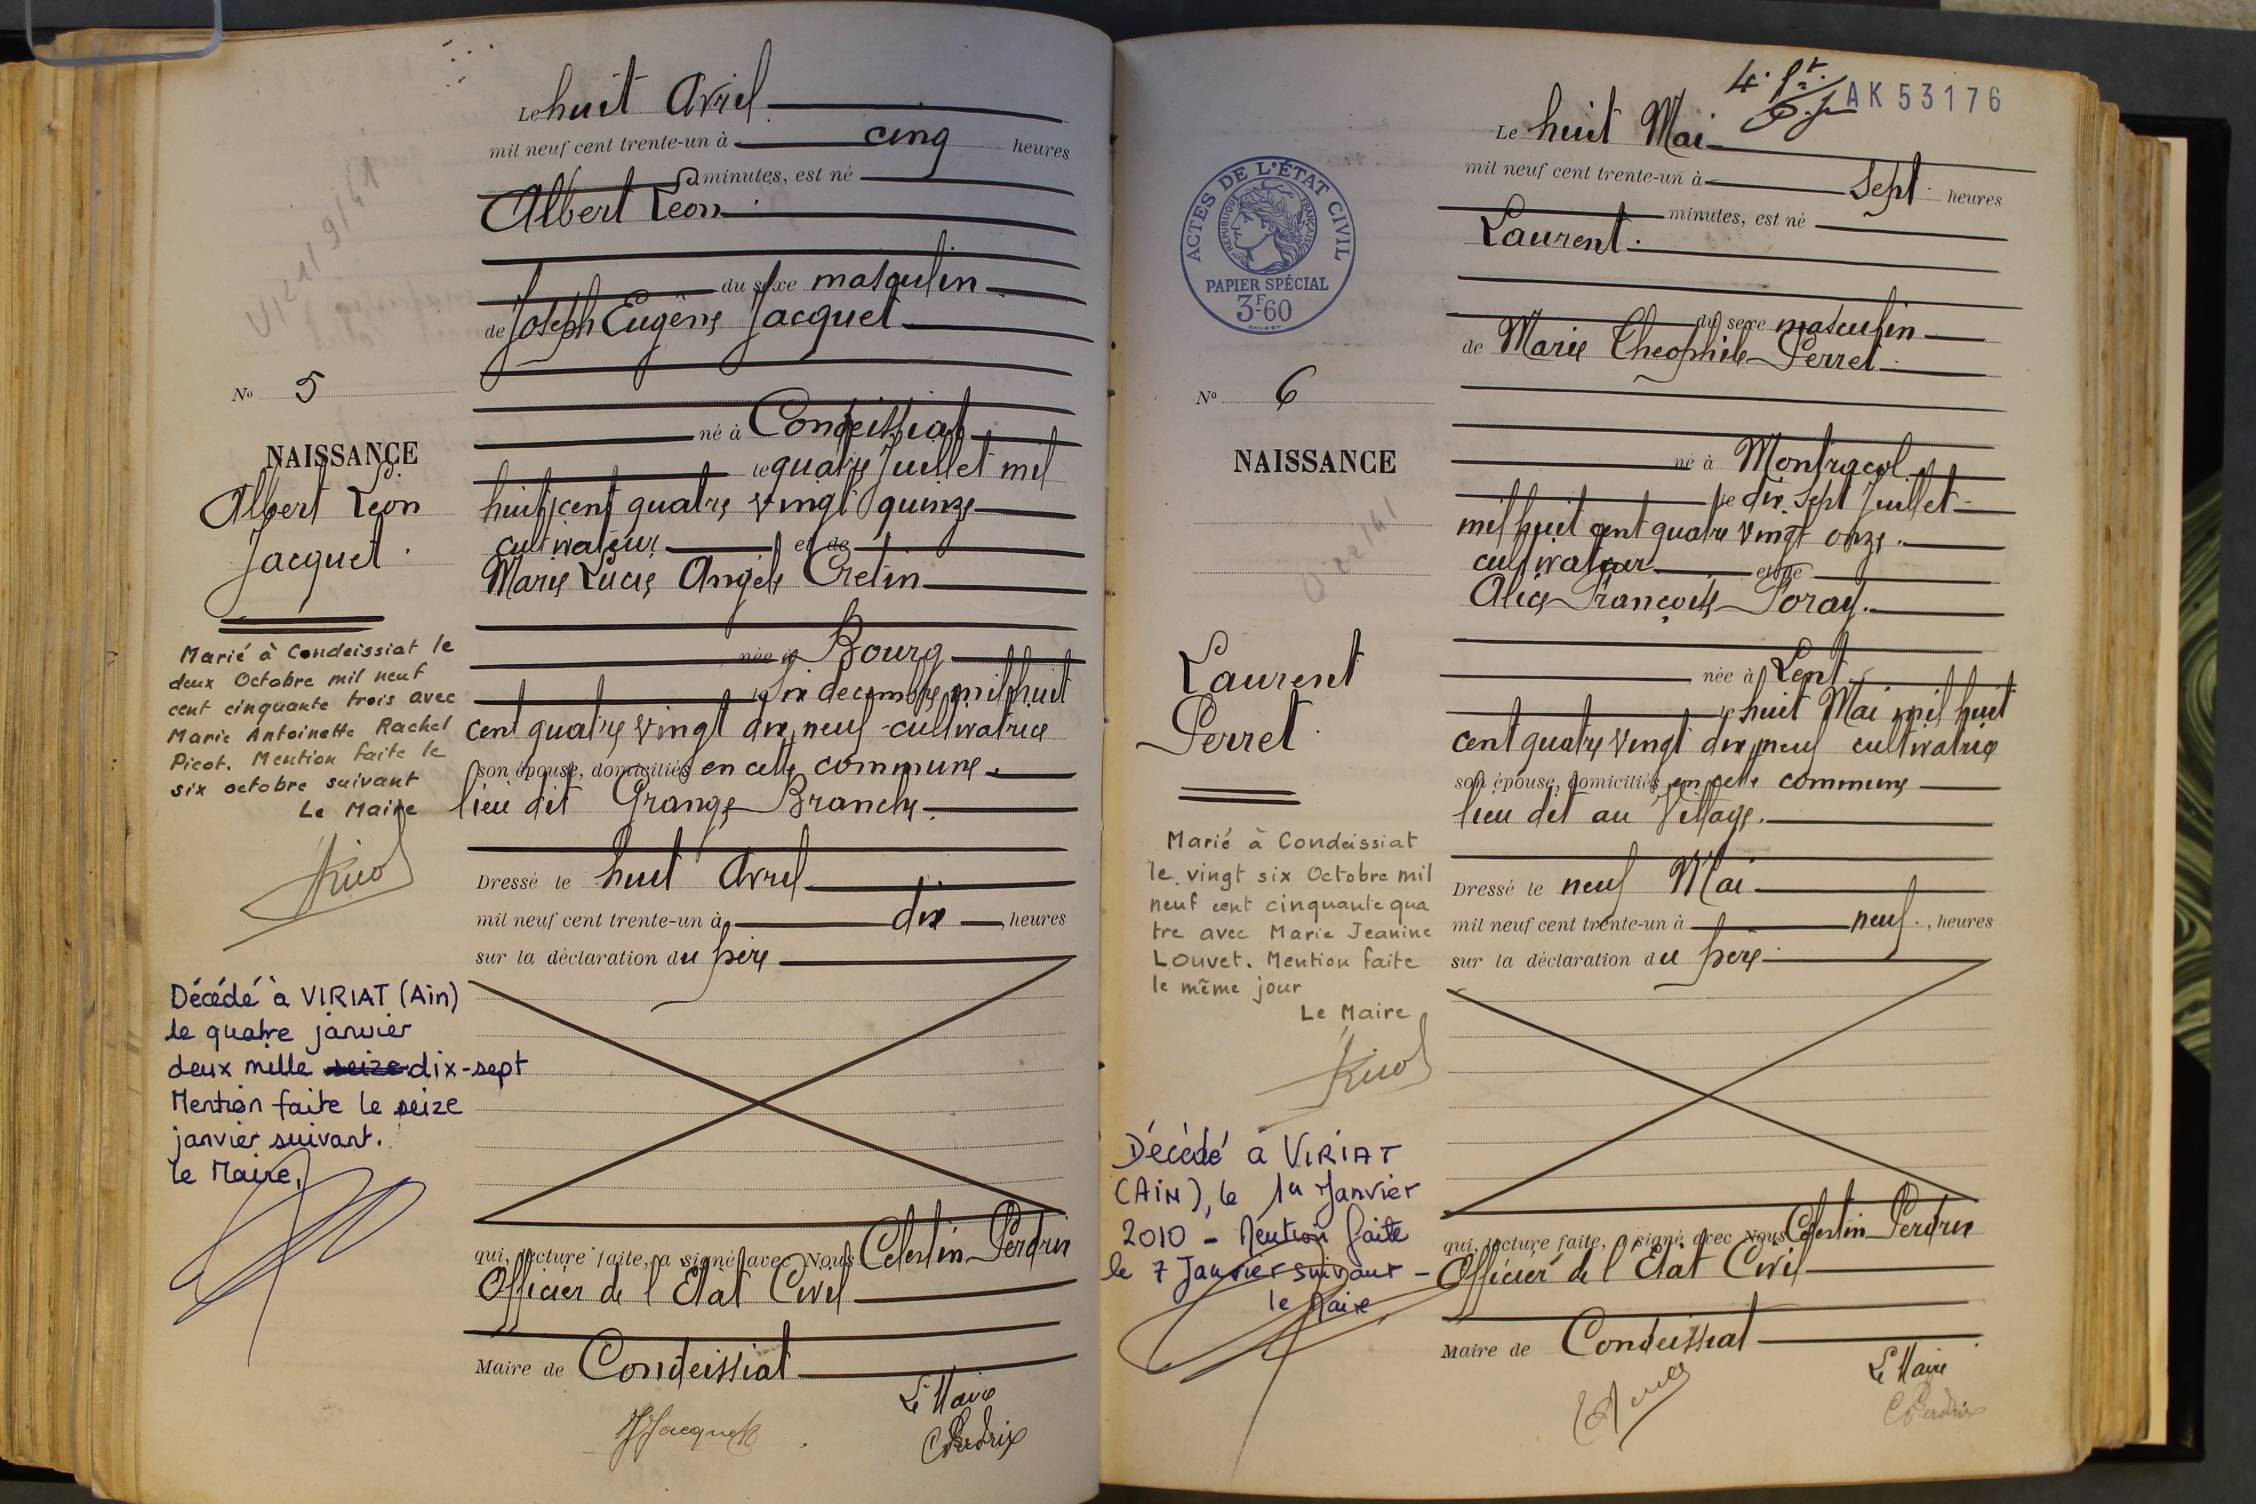 Le huit Avril
mil neuf cent trente-un à cinq heures
minutes, est né
Albert Léon
du sexe masculin
de Joseph Eugène Jacquet
N° 5
né à Condeissiat
NAISSANCE
le quatre Juillet mil
Albert Léon
huit cent quatre vingt quinze
Jacquet
cultivateur et de
Marie Lucie Angèle Cretin
née à Bourg
le six decembre mil huit
cent quatre vingt dix neuf cultivatrice
son épouse, domiciliés en cette commune.
lieu dit Grange Branche
Marié à Condeissiat le
deux Octobre mil neuf
cent cinquante trois avec
Marie Antoinette Rachel
Picot. Mention faite le
six octobre suivant
Le Maire
Dressé le huit Avril
mil neuf cent trente-un à dix heures
sur la déclaration du père
Décédé à VIRIAT (Ain)
le quatre janvier
deux mille seize dix-sept
Mention faite le seize
janvier suivant.
le Maire,
qui, lecture faite, a signé avec Nous Célestin Perdrix
Officier de l'Etat Civil
Maire de Condeissiat
Le Maire
J Jacquet
C Perdrix
4. AK 53176
Le huit Mai
mil neuf cent trente-un à sept heures
minutes, est né
Laurent.
ACTES DE L'ÉTAT CIVIL
RÉPUBLIQUE FRANÇAISE
PAPIER SPÉCIAL
3F-60
du sexe masculin
de Marie Théophile Perret
N° 6
né à Montracol
NAISSANCE
le dix sept Juillet
mil huit cent quatre vingt onze.
cultivateur et de
Alice Françoise Poray.
née à Lent
Laurent
Perret
le huit Mai mil huit
cent quatre vingt dix neuf cultivatrice
son épouse, domiciliés en cette commune
lieu dit au Village.
Marié à Condeissiat
le vingt six Octobre mil
neuf cent cinquante qua
tre avec Marie Jeanine
Louvet. Mention faite
le même jour
Le Maire
Dressé le neuf Mai
mil neuf cent trente-un à neuf, heures
sur la déclaration du père
Décédé à VIRIAT
(AIN), le 1er Janvier
2010 - Mention faite
le 7 Janvier suivant -
le Maire,
qui, lecture faite, a signé avec Nous Célestin Perdrix
Officier de l'Etat Civil
Maire de Condeissiat
Le Maire
C Perdrix